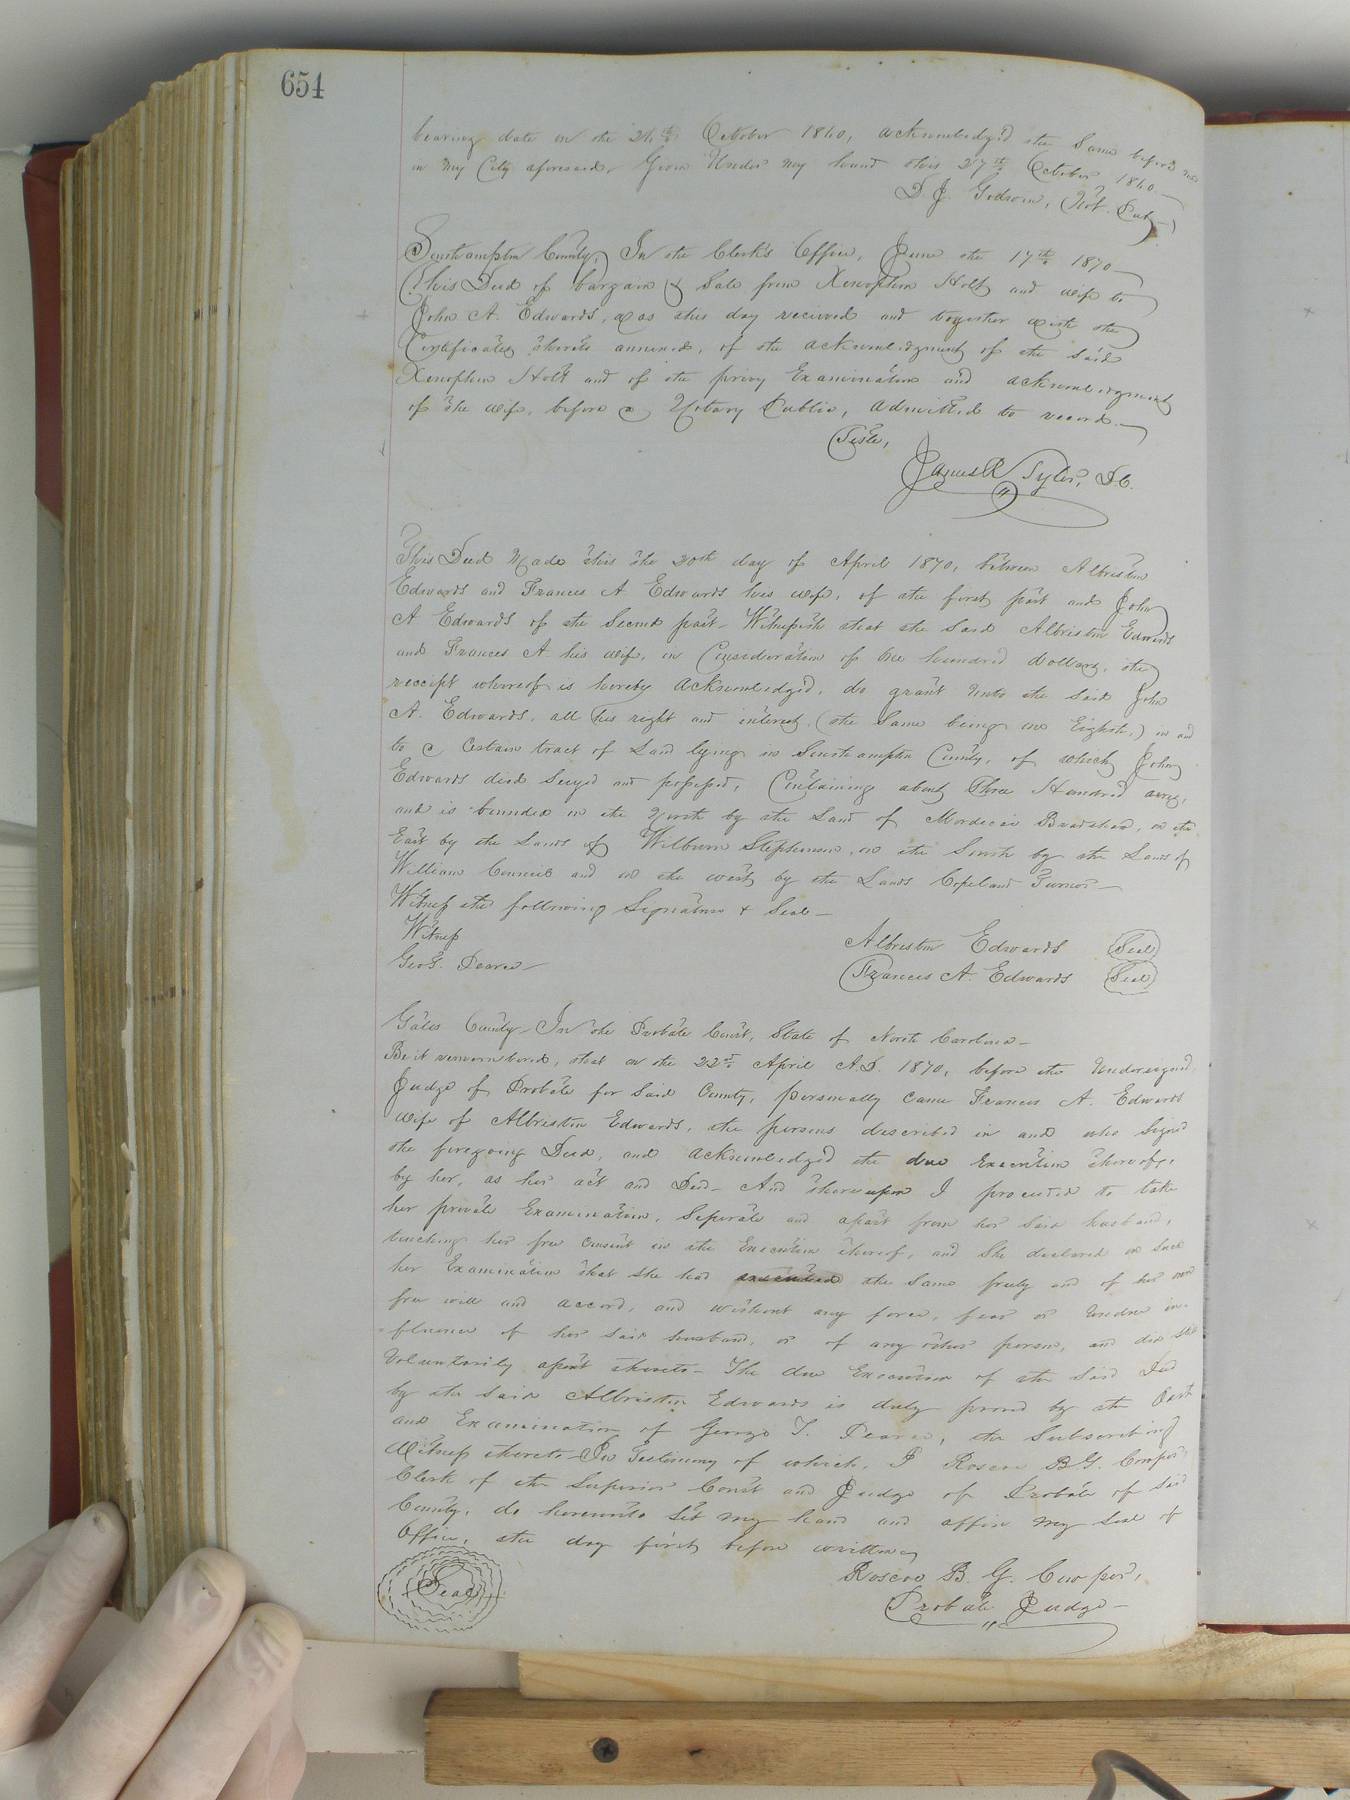 654
bearing date on the 24th October 1860, acknowledged the Same before me
in my City aforesaid. Given Under my hand this 27th October 1860—
D. J. Godwin, Not. Pub—
Southampton County, In the Clerk's Office, June the 17th 1870—
This Deed of bargain & Sale from Xenophon Holt and wife to
John A. Edwards, was this day received and together with the
Certificates thereto annexed, of the acknowledgment of the said
Xenophon Holt and of the privy Examination and acknowledgment
of the wife, before a Notary Public, admitted to record.—
Teste,
James R Tyler, D.C.
This Deed Made this the 20th day of April 1870, between Albriston
Edwards and Frances A Edwards his wife, of the first part and John
A Edwards of the Second part— Witnesseth that the Said Albriston Edwards
and Frances A. his wife, in Consideration of One hundred dollars, the
receipt whereof is hereby acknowledged, do grant unto the said John
A. Edwards, all his right and interest, (the Same being one Eighth,) in and
to a Certain tract of Land lying in Southampton County, of which John
Edwards died Seized and possessed, Containing about Three Hundred acres,
and is bounded on the North by the Land of Mordecai Bradshaw, on the
East by the Lands of Wilburn Stephenson, on the South by the Lands of
William Council and on the west by the Lands Copeland Turner—
Witness the following Signature & Seal—
Witness
Geo T. Pearce—
Albriston Edwards (Seal)
Frances A. Edwards (Seal)
Gates County— In the Probate Court, State of North Carolina—
Be it remembered, that on the 22nd April A.D. 1870, before the Undersigned,
Judge of Probate for Said County, personally came Frances A. Edwards
wife of Albriston Edwards, the persons described in and who Signed
the foregoing Deed, and acknowledged the due Execution thereof,
by her, as her act and Deed— And thereupon I proceeded to take
her private Examination, Seperate and apart from her Said husband,
touching her free consent in the Execution thereof, and She declared on such
her Examination that she had executed the Same freely and of her own
free will and accord, and without any force, fear or Undue in-
fluence of her said husband, or of any other person, and did still
Voluntarily assent thereto— The due Execution of the said Deed
by the said Albriston Edwards is duly proved by the Oath
and Examination of George T. Pearce, the Subscribing
Witness thereto— In Testimony of which, I Roscoe B G. Cowper
Clerk of the Superior Court and Judge of Probate of said
County, do hereunto Set my hand and affix my Seal of
Office, the day first before written
Seal
Roscoe B. G. Cowper,
Probate Judge—